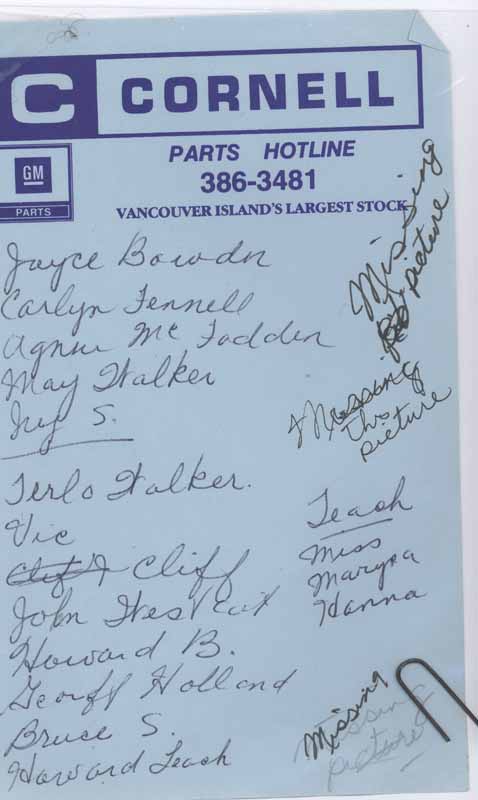 C CORNELL
GM
PARTS
PARTS HOTLINE
386-3481
VANCOUVER ISLAND'S LARGEST STOCK
Joyce Bowden
Carlyn Fennell
Agnus McFadden
May Walker
Ivy S.
Missing
picture
Missing
this
picture
Terlo Walker.
Vic
Cliff
John Westcot
Howard B.
Geouff Holland
Bruce S.
Howard Leach
Leach
Miss
Hanna
Missing
Missing
picture